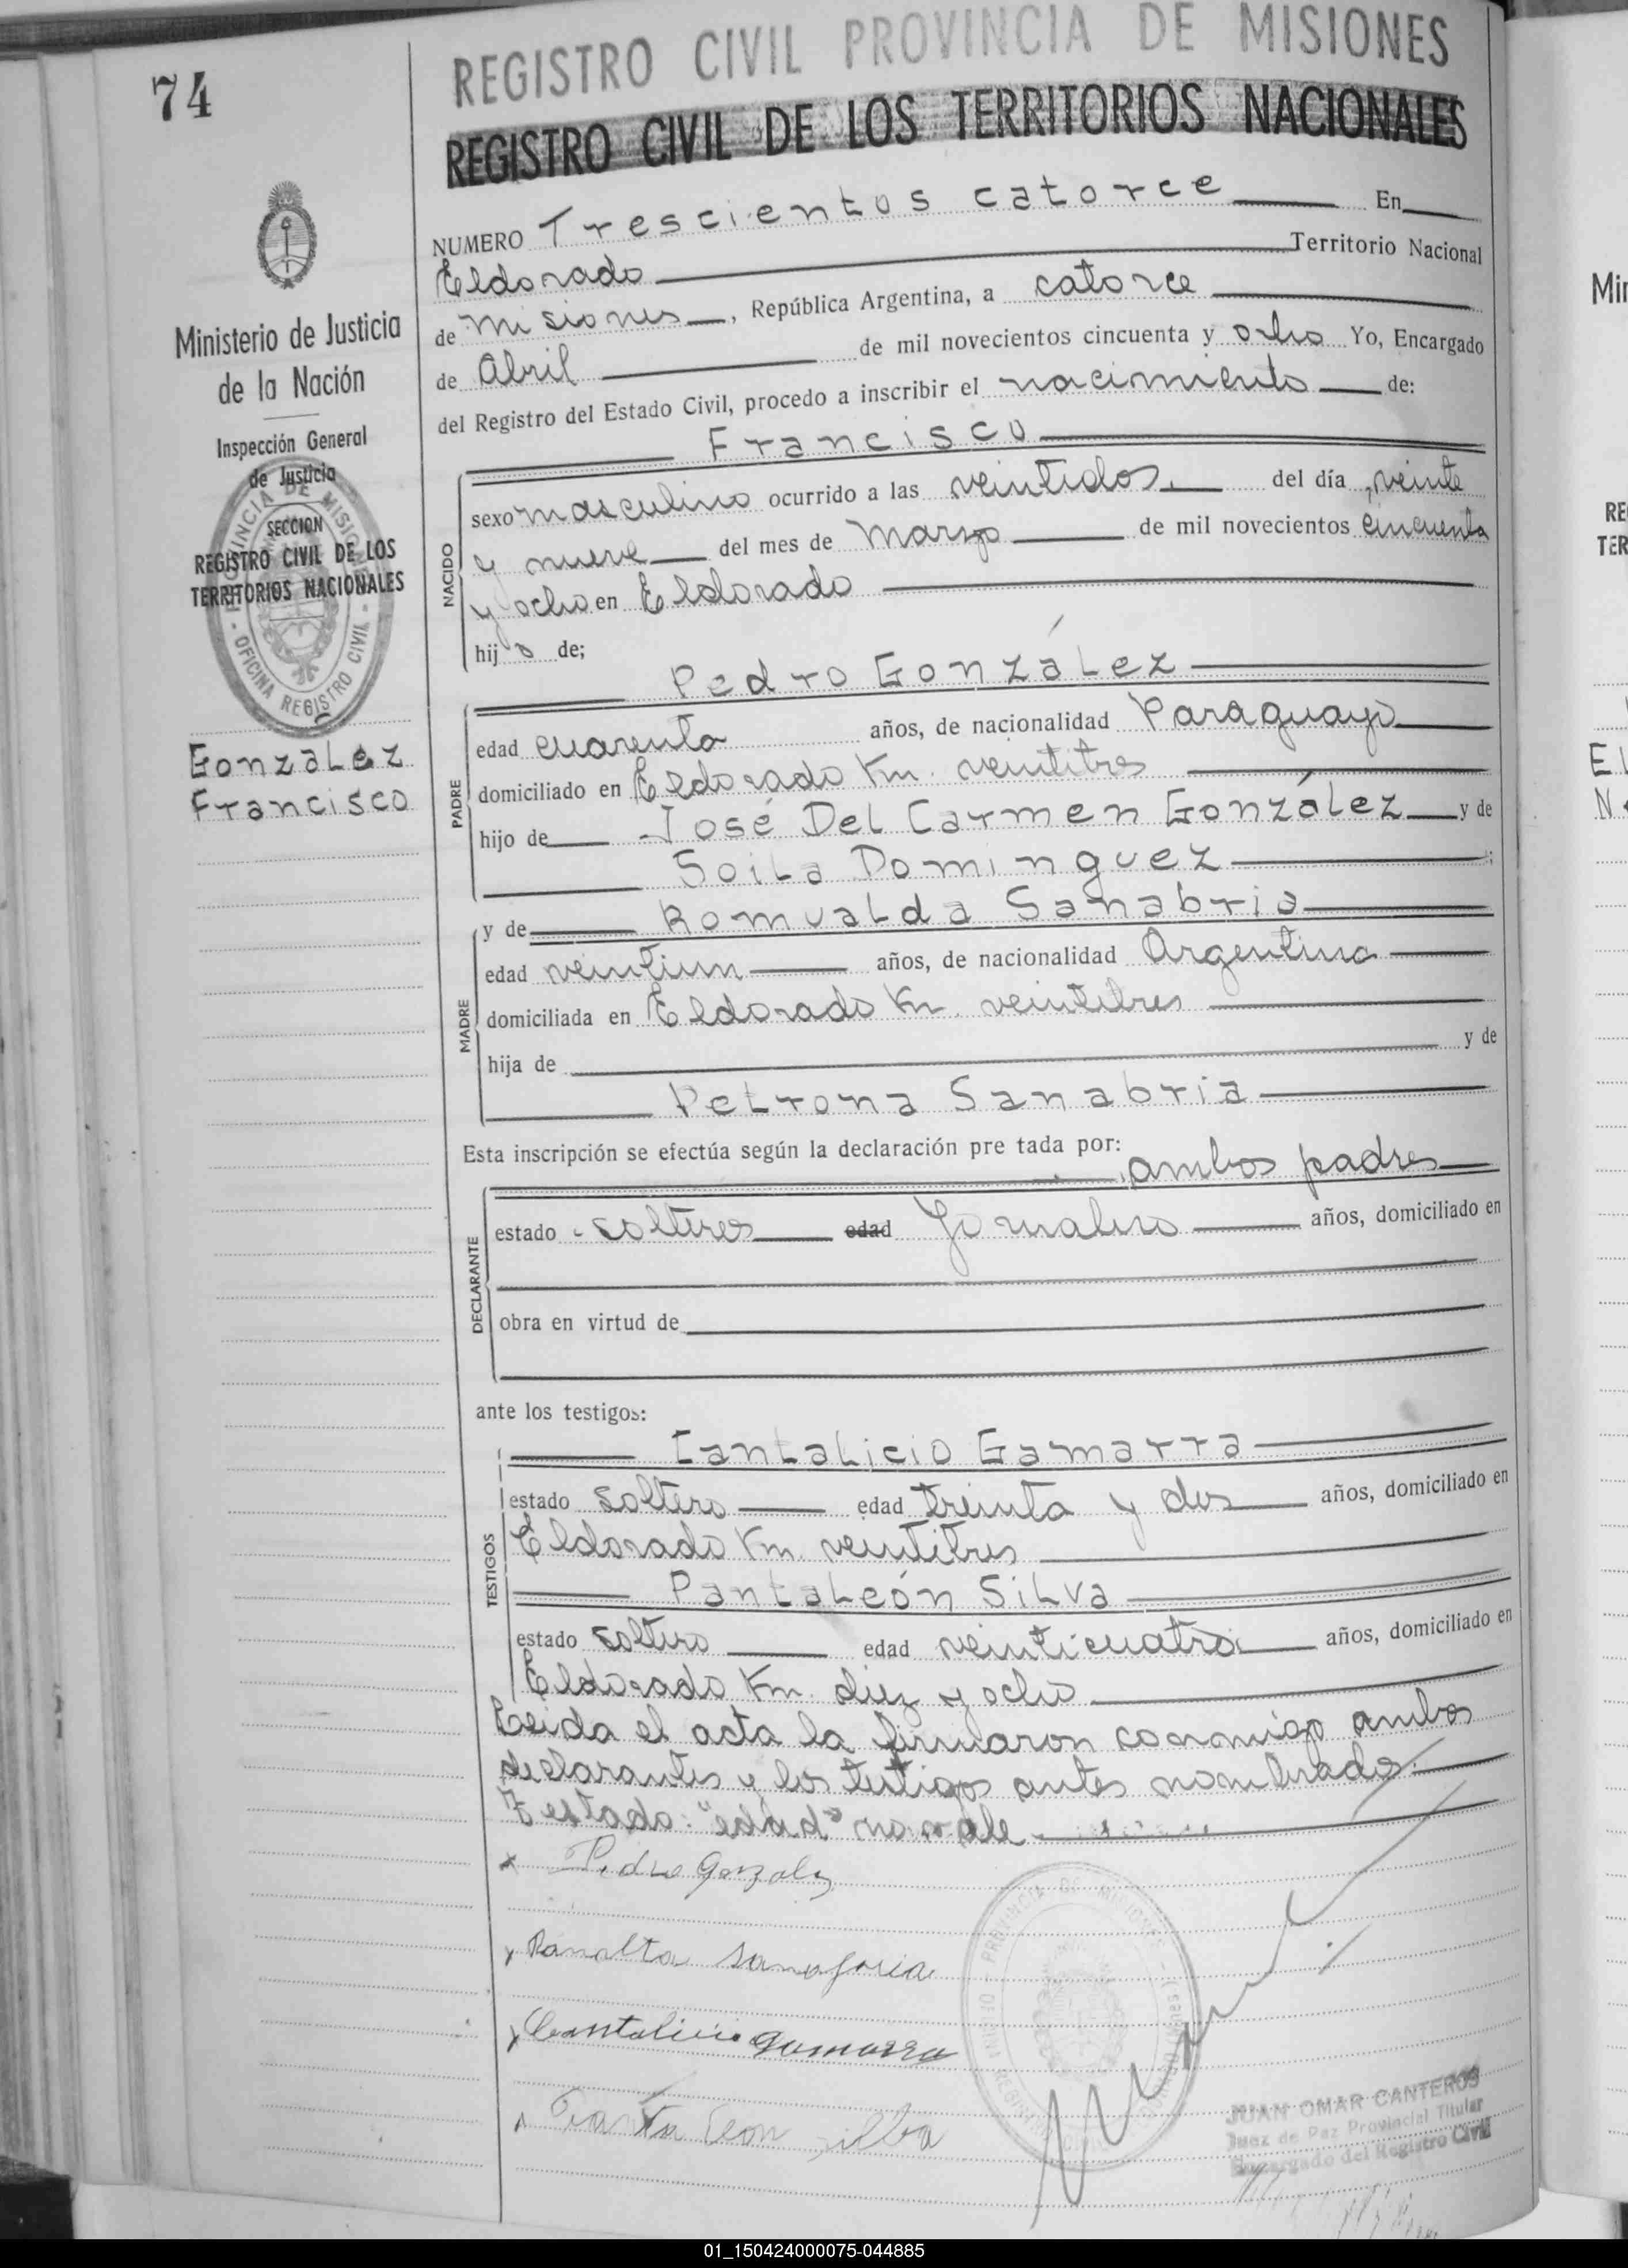 74
REGISTRO CIVIL PROVINCIA DE MISIONES
REGISTRO CIVIL DE LOS TERRITORIOS NACIONALES
Ministerio de Justicia
de la Nación
Inspección General
de Justicia
SECCION
REGISTRO CIVIL DE LOS
TERRITORIOS NACIONALES
PROVINCIA DE MISIONES - OFICINA REGISTRO CIVIL -
Gonzalez
Francisco
NUMERO Trescientos catorce En
Eldorado Territorio Nacional
de Misiones, República Argentina, a catorce
de Abril de mil novecientos cincuenta y ocho Yo, Encargado
del Registro del Estado Civil, procedo a inscribir el nacimiento de:
Francisco
NACIDO
sexo masculino ocurrido a las veintidos. del día veinte
y nueve del mes de Marzo de mil novecientos cincuenta
y ocho en Eldorado
hijo de;
Pedro González
PADRE
edad cuarenta años, de nacionalidad Paraguayo
domiciliado en Eldorado Km. veintitres
hijo de José Del Carmen González y de
Soila Dominguez;
y de Romualda Sanabria
MADRE
edad veintiun años, de nacionalidad Argentina
domiciliada en Eldorado Km. veintitres
hija de y de
Petrona Sanabria
Esta inscripción se efectúa según la declaración pre tada por:
ambos padres
DECLARANTE
estado solteros edad Jornalero años, domiciliado en
obra en virtud de
ante los testigos:
TESTIGOS
Cantalicio Gamarra
estado soltero edad treinta y dos años, domiciliado en
Eldorado Km. veintitres
Pantaleón Silva
estado soltero edad veinticuatro años, domiciliado en
Eldorado Km. diez y ocho
Leida el acta la firmaron conmigo ambos
declarantes y los testigos antes nombrados.
Testado: "edad" no vale
x Pedro Gonzalez
x Sanabria
x Cantalicio Gamarra
Panta leon silba
JUAN OMAR CANTEROS
Juez de Paz Provincial Titular
Encargado del Registro Civil
Min
RE
TER
El
N
01_150424000075-044885